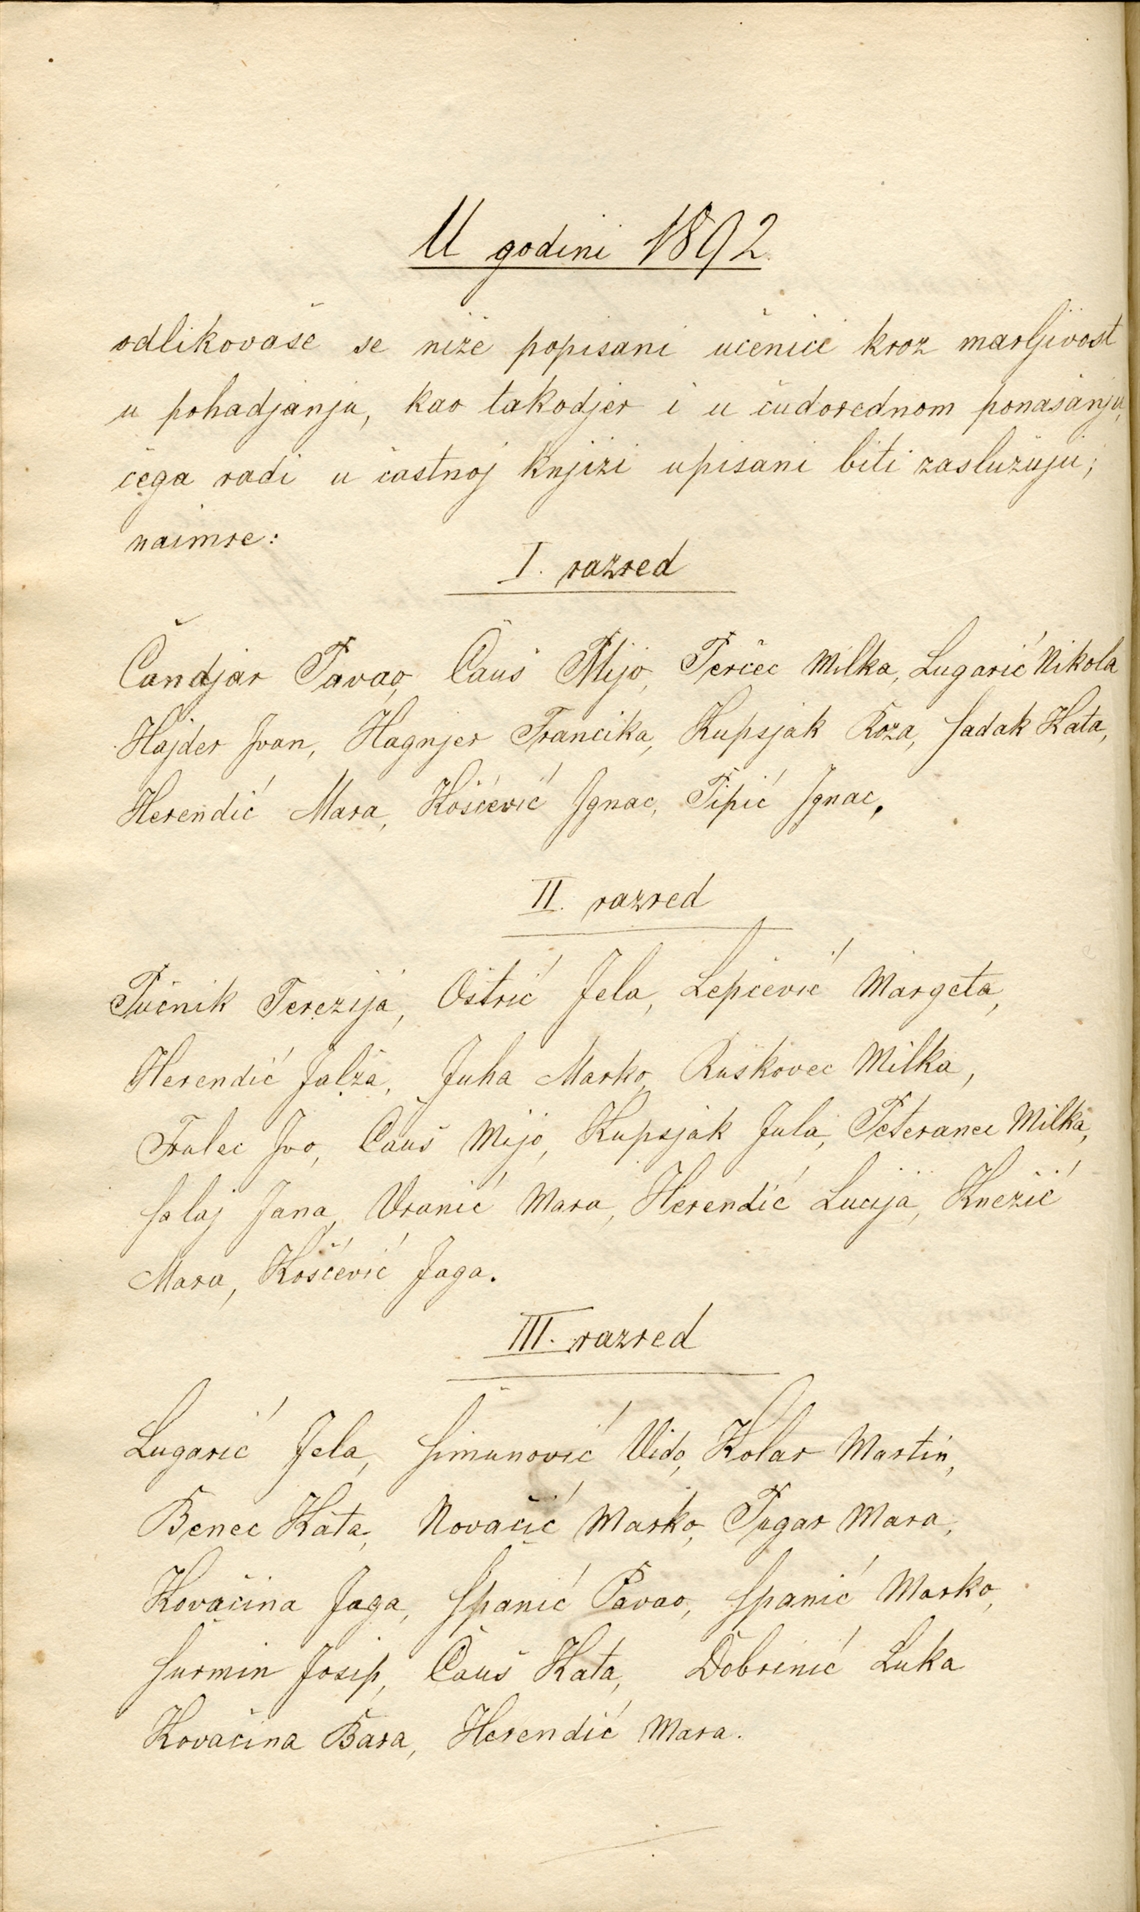 U godini 1892
odlikovaše se niže popisani učenici kroz marljivost
u pohadjanju, kao takodjer i u ćudorednom ponašanju,
čega radi u častnoj knjizi upisani biti zaslužuju;
naimre:
I. razred
Čandjar Pavao, Čauš Mijo, Perčec Milka, Lugarić Nikola
Hajder Ivan, Hagnjer Francika, Kupsjak Roza, Sadak Kata,
Herendić Mara, Košćević Ignac, Pipić Ignac.
II. razred
Pučnik Terezija, Oštrić Jela, Lepčević Margeta,
Herendić Jalža, Juha Marko, Ruškovec Milka,
Fralec Ivo, Čauš Mijo, Kupsjak Jula, Peteranec Milka,
Salaj Jana, Vranić Mara, Herendić Lucija, Knežić
Mara, Košćević Jaga.
III. razred
Lugarić Jela, Šimunović Vido, Kolar Martin,
Benec Kata, Novačić Marko, Pugar Mara,
Kovačina Jaga, Španić Pavao, Španić Marko,
Šurmin Josip, Čauš Kata, Dobrinić Luka
Kovačina Bara, Herendić Mara.